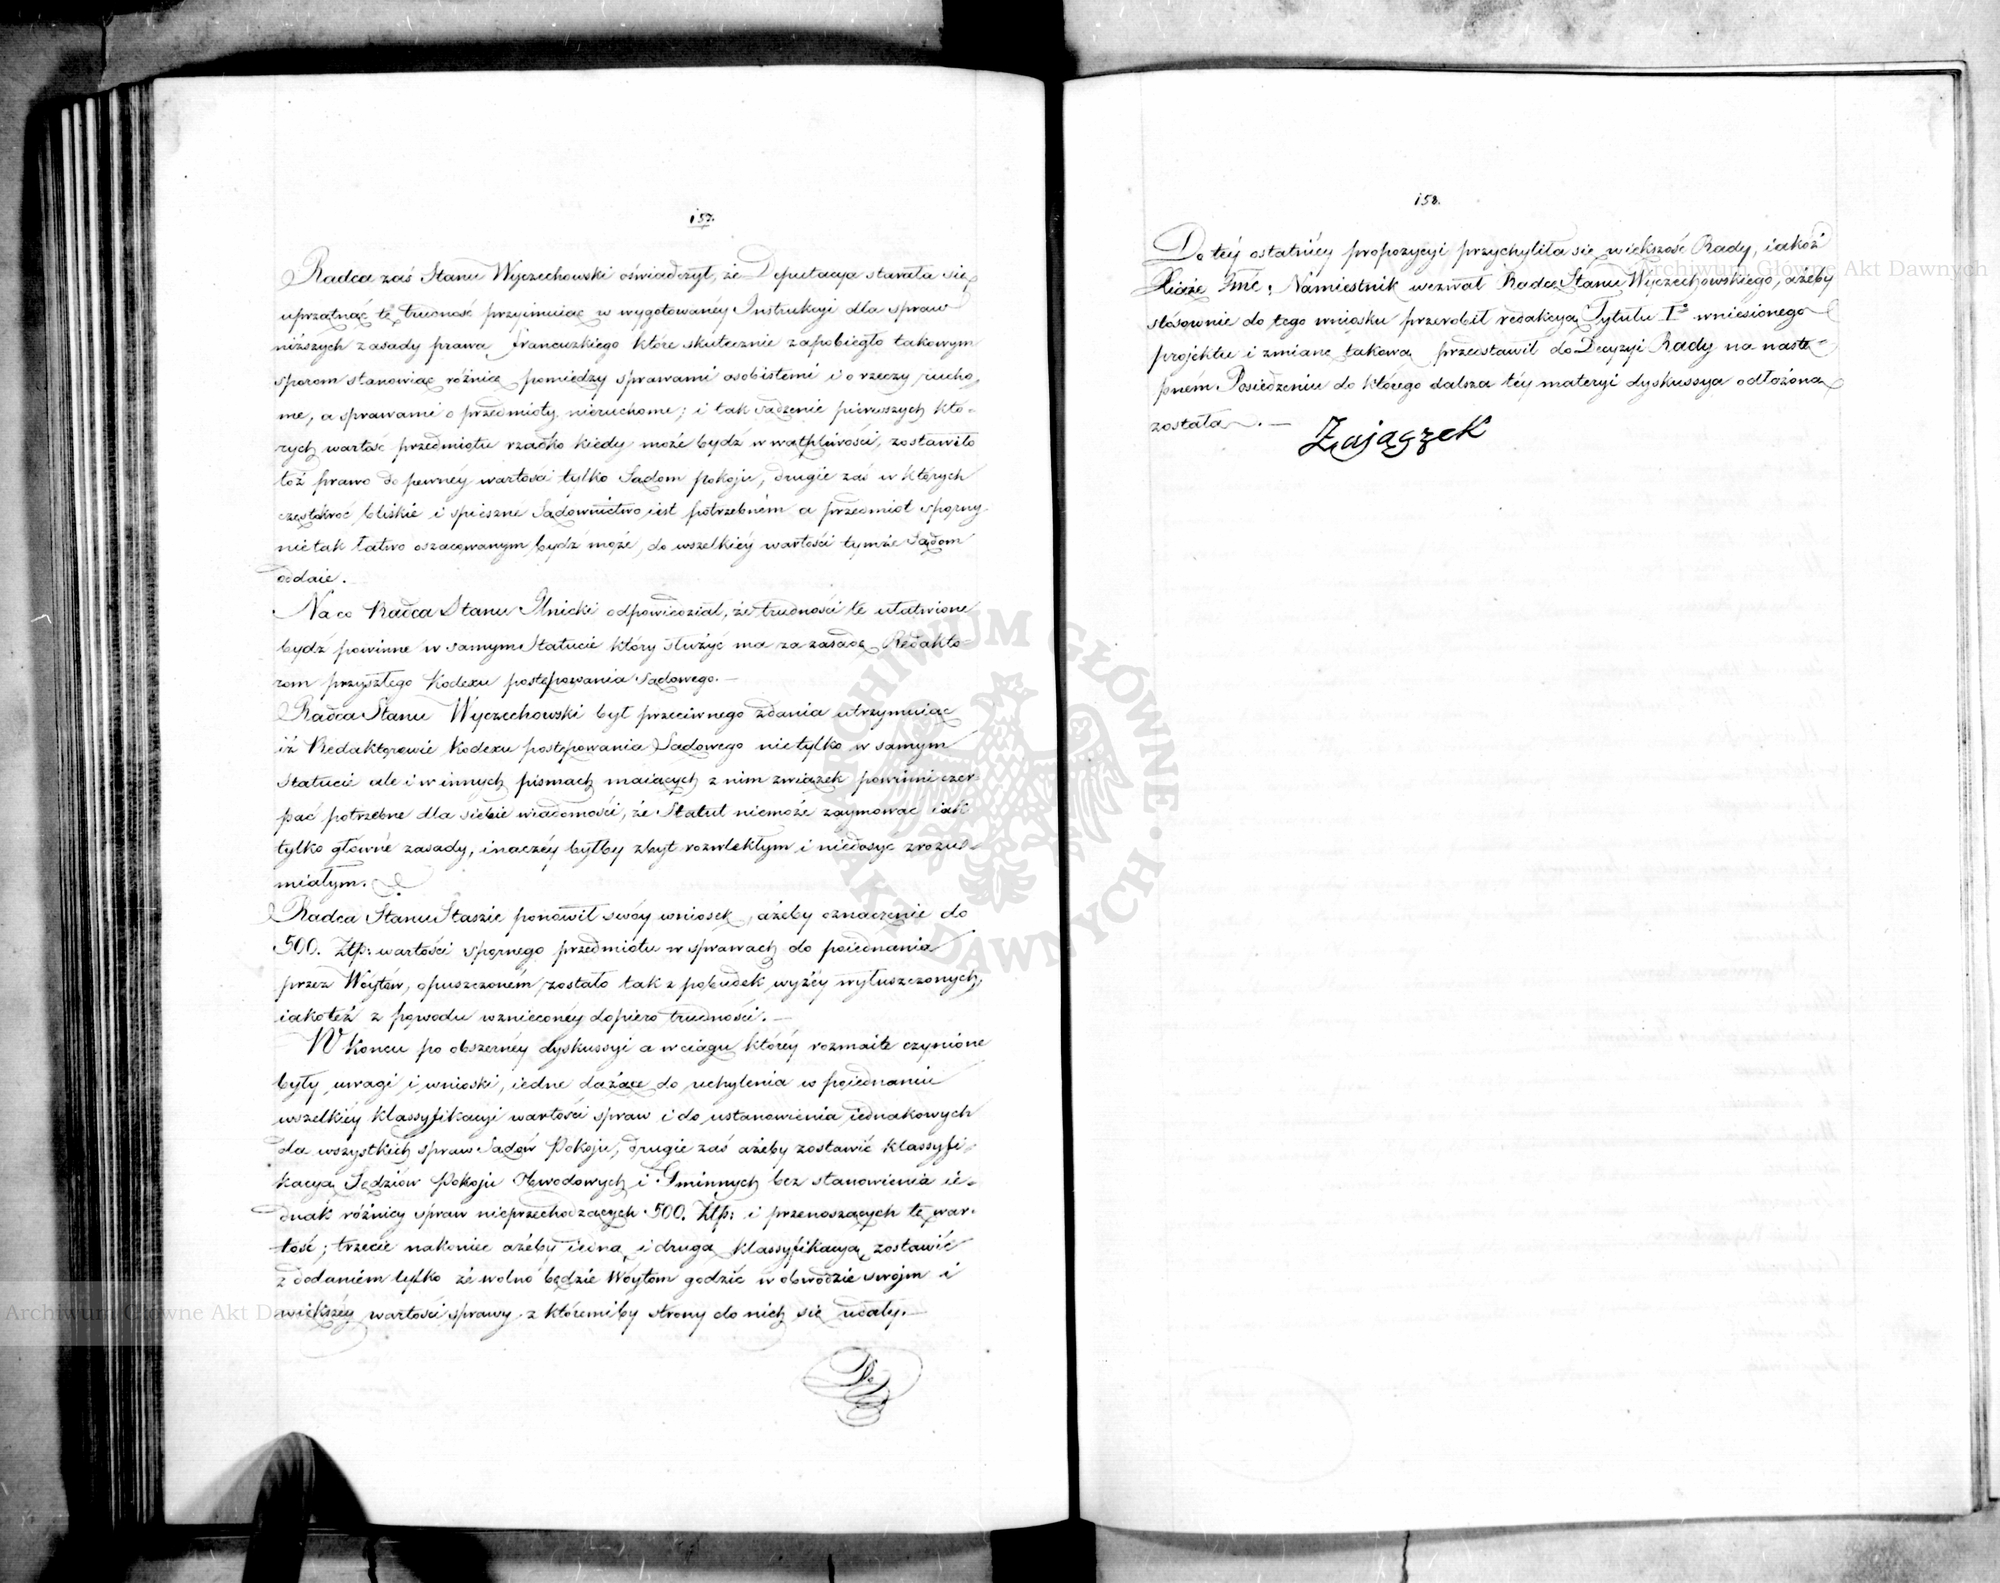 157.
Radca zaś Stanu Wyczechowski oświadczył, że Deputacya starała się
uprzątnąć tę trudność przyimuiąc w wygotowanéy Instrukcyi dla spraw
niższych zasady prawa Francuzkiego które skutecznie zapobiegło takowym
sporom stanowiąc różnicę pomiędzy sprawami osobistemi i o rzeczy rucho„
me, a sprawami o przedmioty nieruchome; i tak sądzenie pierwszych któ„
rych wartość przedmiotu rzadko kiedy może bydź w wątpliwości, zostawiło
toż prawo do pewnéy wartości tylko Sądom pokoju, drugie zaś w których
częstokroć bliskie i spieszne Sądownictwo iest potrzebném a przedmiot sporny
nietak łatwo oszacowanym bydź może, do wszelkiéy wartości tymże Sądom
oddaie.
Na co Radca Stanu Ilnicki odpowiedział, że trudności te ułatwione
bydź powinne w samym Statucie który służyć ma za zasadę Redakto„
rom przyszłego Kodexu postępowania Sądowego.
Radca Stanu Wyczechowski był przeciwnego zdania utrzymuiąc
iż Redaktorowie Kodexu postępowania Sądowego nietylko w samym
Statucie ale i w innych pismach maiących z nim związek powinni czer„
pać potrzebne dla siebie wiadomości, że Statut niemoże zaymować iak
tylko główne zasady, inaczéy byłby zbyt rozwlekłym i niedosyć zrozu„
miałym.
Radca Stanu Staszic ponowił swóy wniosek, ażeby oznaczenie do
500. Złp: wartości spornego przedmiotu w sprawach do poiednania
przez Wóytów, opuszczoném zostało tak z pobudek wyżéy wyłuszczonych,
iakoteż z powodu wznieconéy dopiero trudności.
W końcu po obszernéy dyskussyi a w ciągu któréy rozmaite czynione
były uwagi i wnioski, iedne dążące do uchylenia w poiednaniu
wszelkiéy klassyfikacyi wartości spraw i do ustanowienia iednakowych
dla wszystkich spraw Sądów Pokoju, drugie zaś ażeby zostawić klassyfi„
kacyą Sędziów Pokoju Obwodowych i Gminnych bez stanowienia ie„
dnak różnicy spraw nieprzechodzących 500. Złp: i przenoszących tę war„
tość; trzecie nakoniec ażeby iedną i drugą klassyfikacyą zostawić
z dodaniem tylko że wolno będzie Wóytom godzić w obwodzie swoim i
większéy wartości sprawy z któremiby strony do nich się udały.
Do
158.
Do téy ostatniéy propozycyi przychyliła się większość Rady, iakoż
Xiąże Jmć Namiestnik wezwał Radcę Stanu Wyczechowskiego, ażeby
stosownie do tego wniosku przerobił redakcyą Tytułu Iº wniesionego
projektu i zmianę takową przedstawił do Decyzyi Rady na nastę„
pném Posiedzeniu do którego dalsza téy materyi dyskussya odłożoną
została.
Zajączek
ARCHIWUM GŁÓWNE AKT DAWNYCH
Archiwum Główne Akt Dawnych
Archiwum Główne Akt Dawnych